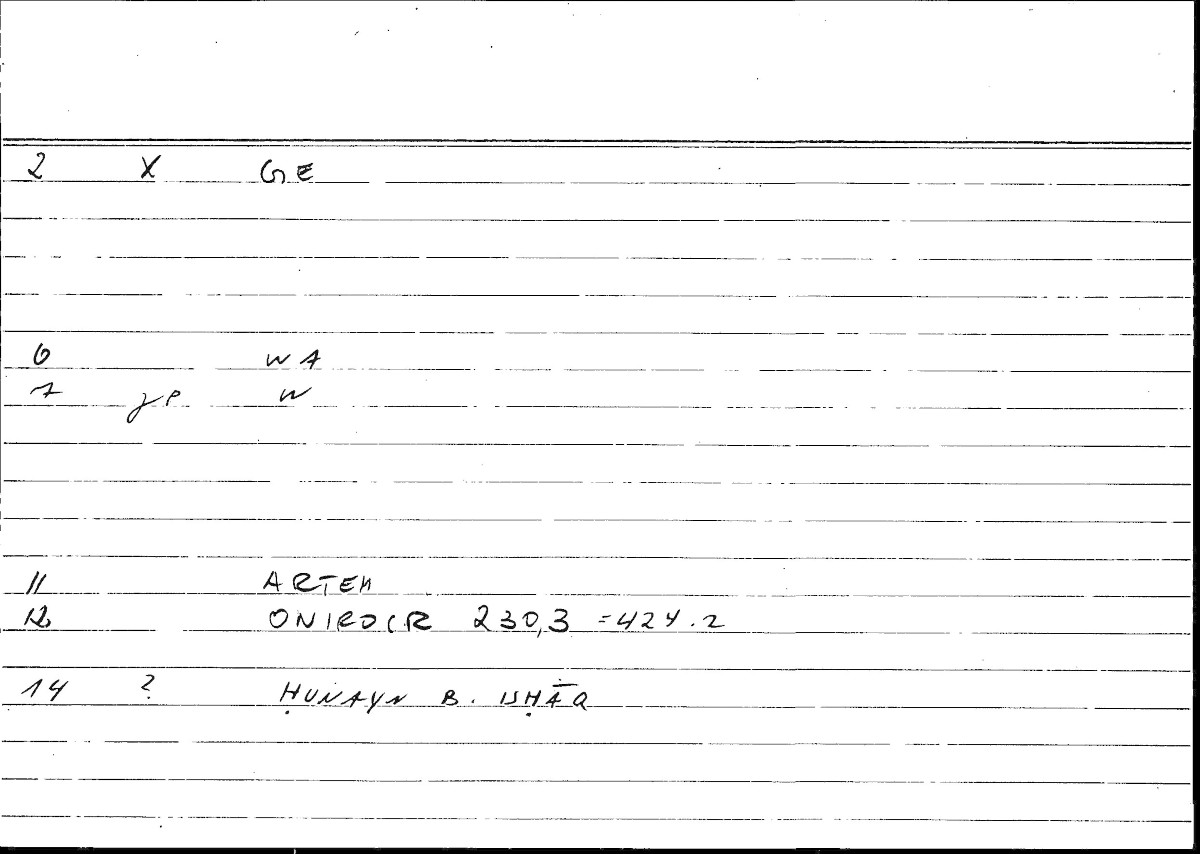 2 X GE
6 WA
7 γρ W
11 ARTEM
12 ONIROCR 230,3 =424.2
14 ? ḤUNAYN B. ISḤĀQ